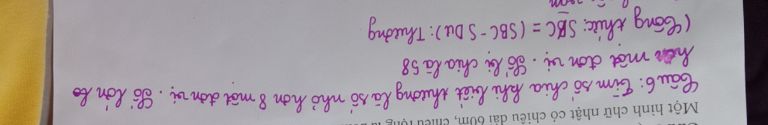 Một hình chữ nhật có chiều dài 60m, chiều rộng
Câu 6: Tìm số chia khi biết thương là số nhỏ hơn 8 một đơn vị. Số lớn
hơn một đơn vị. Số bị chia là 58
(Công thức: SBC = (SBC - S Dư): Thương